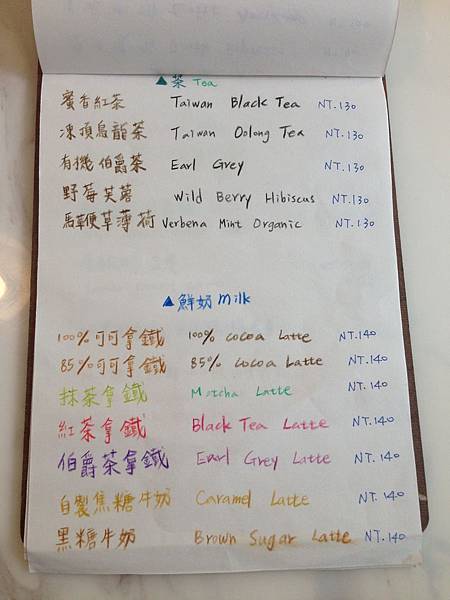 ▲茶 Tea
蜜香紅茶 Taiwan Black Tea NT.130
凍頂烏龍茶 Taiwan Oolong Tea NT.130
有機伯爵茶 Earl Grey NT.130
野莓芙蓉 Wild Berry Hibiscus NT.130
馬鞭草薄荷 Verbena Mint Organic NT.130
▲鮮奶 milk
100%可可拿鐵 100% cocoa Latte NT.140
85%可可拿鐵 85% cocoa Latte NT.140
抹茶拿鐵 Matcha Latte NT.140
紅茶拿鐵 Black Tea Latte NT.140
伯爵茶拿鐵 Earl Grey Latte NT.140
自製焦糖牛奶 Caramel Latte NT.140
黑糖牛奶 Brown Sugar Latte NT.140